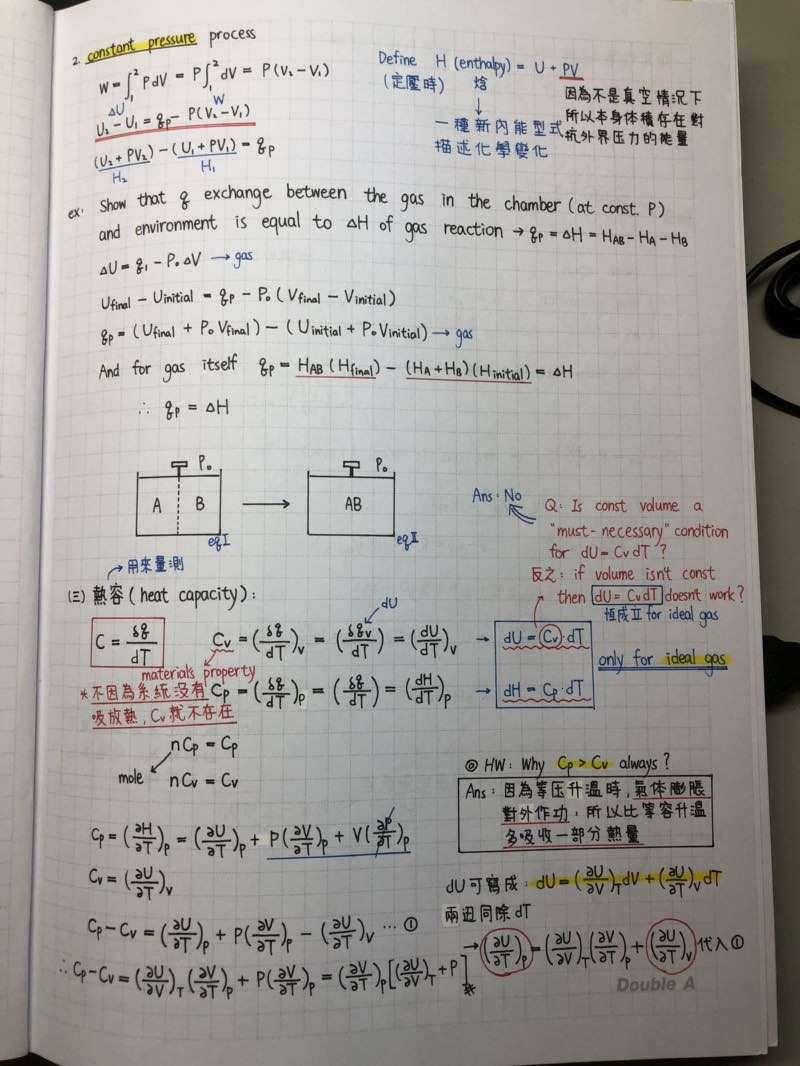 2. constant pressure process
W = ∫₁² PdV = P∫₁² dV = P(V₂ - V₁)
ΔU W
U₂ - U₁ = q_p - P(V₂ - V₁)
(U₂ + PV₂) - (U₁ + PV₁) = q_p
H₂ H₁
Define H (enthalpy) = U + PV
(定壓時) 焓
一種新內能型式
描述化學變化
因為不是真空情況下
所以本身體積存在對
抗外界压力的能量
ex. Show that q exchange between the gas in the chamber (at const. P)
and environment is equal to ΔH of gas reaction → q_p = ΔH = H_AB - H_A - H_B
ΔU = q₁ - P₀ΔV → gas
U_final - U_initial = q_p - P₀(V_final - V_initial)
q_p = (U_final + P₀V_final) - (U_initial + P₀V_initial) → gas
And for gas itself q_p = H_AB (H_final) - (H_A + H_B)(H_initial) = ΔH
∴ q_p = ΔH
P₀ P₀
A B → AB
eqⅠ eqⅡ
Ans: No
Q: Is const volume a
"must-necessary" condition
for dU = CvdT ?
反之: if volume isn't const
then dU = CvdT doesn't work?
恆成立 for ideal gas
→ 用來量測
(三) 熱容 (heat capacity):
dU
C = δq/dT Cv = (δq/dT)_v = (δq_v/dT) = (dU/dT)_v → dU = Cv·dT
material's property
only for ideal gas
*不因為系統沒有
吸放熱, Cv就不存在
Cp = (δq/dT)_p = (δq/dT) = (dH/dT)_p → dH = Cp·dT
nCp = Cp
mole nCv = Cv
◎ HW: Why Cp > Cv always?
Ans: 因為等压升溫時, 氣体膨脹
對外作功, 所以比等容升溫
多吸收一部分熱量
Cp = (∂H/∂T)_p = (∂U/∂T)_p + P(∂V/∂T)_p + V(∂P/∂T)_p
Cv = (∂U/∂T)_v
Cp - Cv = (∂U/∂T)_p + P(∂V/∂T)_p - (∂U/∂T)_v … ①
dU可寫成: dU = (∂U/∂V)_T dV + (∂U/∂T)_v dT
兩边同除dT
→ (∂U/∂T)_p = (∂U/∂V)_T (∂V/∂T)_p + (∂U/∂T)_v 代入①
∴ Cp - Cv = (∂U/∂V)_T (∂V/∂T)_p + P(∂V/∂T)_p = (∂V/∂T)_p [(∂U/∂V)_T + P] *
Double A